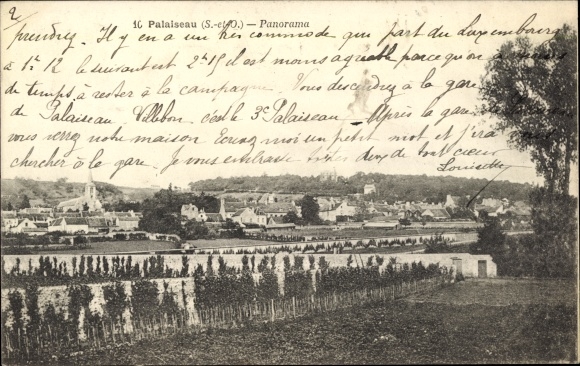 2
10 Palaiseau (S.-et-O.) — Panorama
prendrez. Il y en a un très commode que part du Luxembourg
à 1h 12 le suivant est 2h15 il est moins agréable parce qu'on a moins
de temps à rester à la campagne. Vous descendrez à la gare
de Palaiseau Villebon c'est le 3e Palaiseau — Après la gare
vous verrez notre maison Ecrivez moi un petit mot et j'irai
chercher à la gare. Je vous embrasse tous deux de tout cœur
Louisette